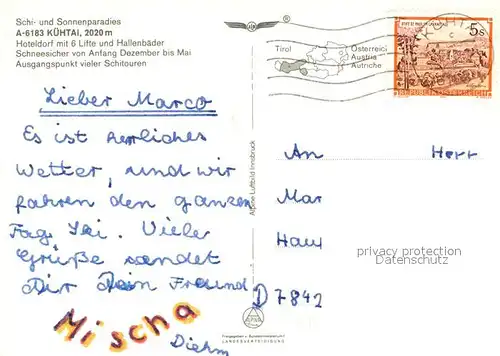 Schi- und Sonnenparadies
A-6183 KÜHTAI, 2020 m
Hoteldorf mit 6 Lifte und Hallenbäder
Schneesicher von Anfang Dezember bis Mai
Ausgangspunkt vieler Schitouren
Lieber Marco
Es ist herrliches
Wetter, und wir
fahren den ganzen
Tag Ski. Viele
Grüße sendet
Dir Dein Freund
Mischa
Diehm
Alpine Luftbild Innsbruck
Tirol
Österreich
Austria
Autriche
5s
REPUBLIK ÖSTERREICH
An Herr
Mar
Hau
D 7842
privacy protection
Datenschutz
LANDESVERTEIDIGUNG